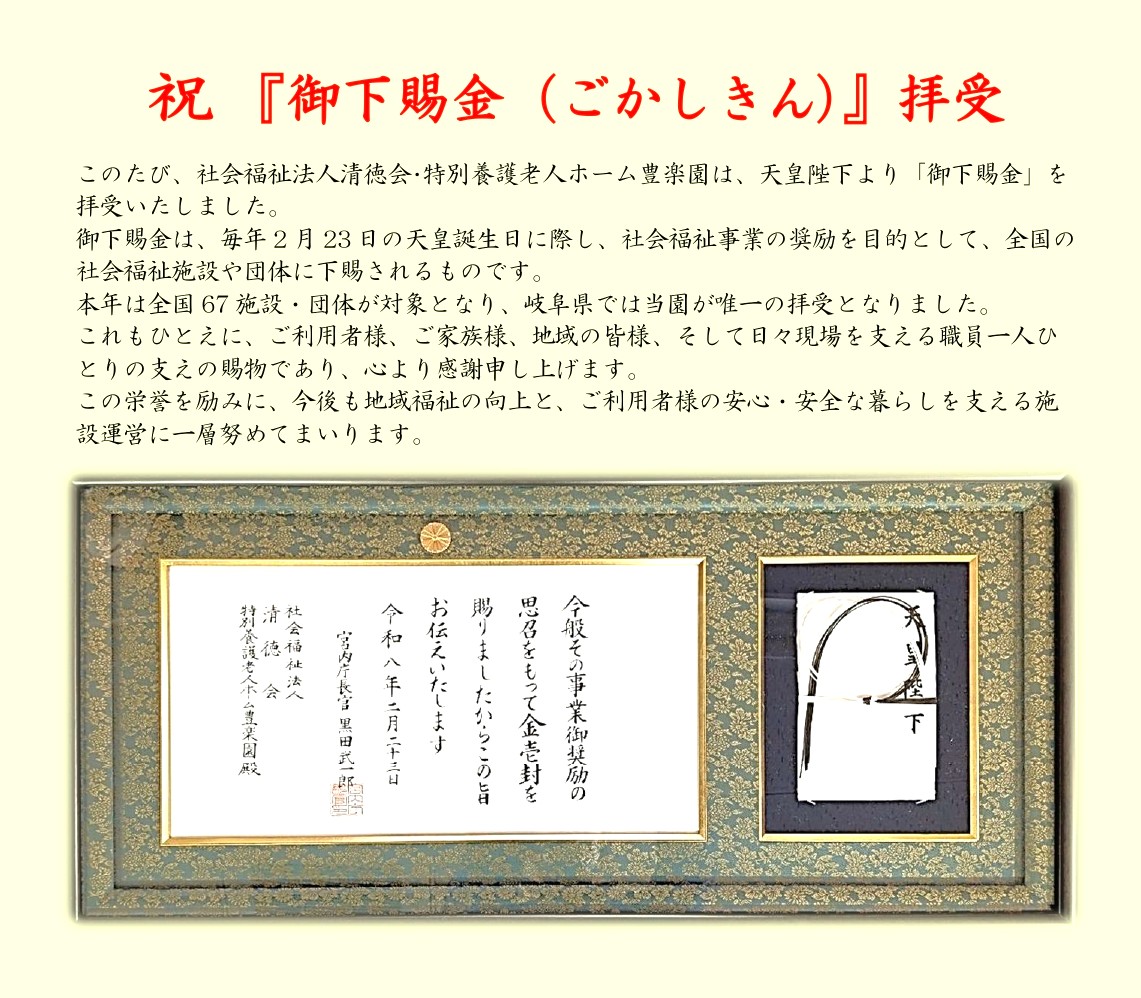 祝 『御下賜金（ごかしきん）』拝受
このたび、社会福祉法人清徳会・特別養護老人ホーム豊楽園は、天皇陛下より「御下賜金」を
拝受いたしました。
御下賜金は、毎年2月23日の天皇誕生日に際し、社会福祉事業の奨励を目的として、全国の
社会福祉施設や団体に下賜されるものです。
本年は全国67施設・団体が対象となり、岐阜県では当園が唯一の拝受となりました。
これもひとえに、ご利用者様、ご家族様、地域の皆様、そして日々現場を支える職員一人ひ
とりの支えの賜物であり、心より感謝申し上げます。
この栄誉を励みに、今後も地域福祉の向上と、ご利用者様の安心・安全な暮らしを支える施
設運営に一層努めてまいります。
天皇陛下
今般その事業御奨励の
思召をもって金壱封を
賜りましたからこの旨
お伝えいたします
令和八年二月二十三日
宮内庁長官 黒田武一郎
社会福祉法人
清徳会
特別養護老人ホーム豊楽園殿